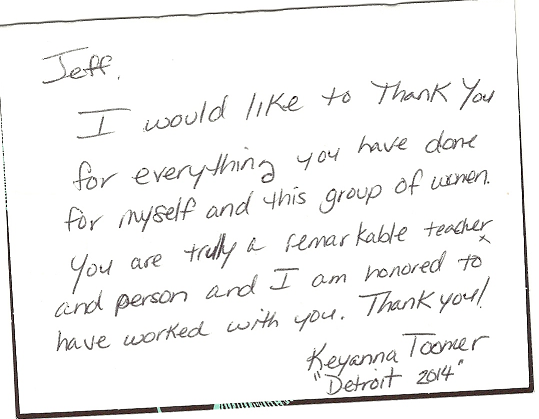 Jeff,
I would like to Thank You
for everything you have done
for myself and this group of women.
You are truly a remarkable teacher
and person and I am honored to
have worked with you. Thank you!
Keyanna Toomer
"Detroit 2014"